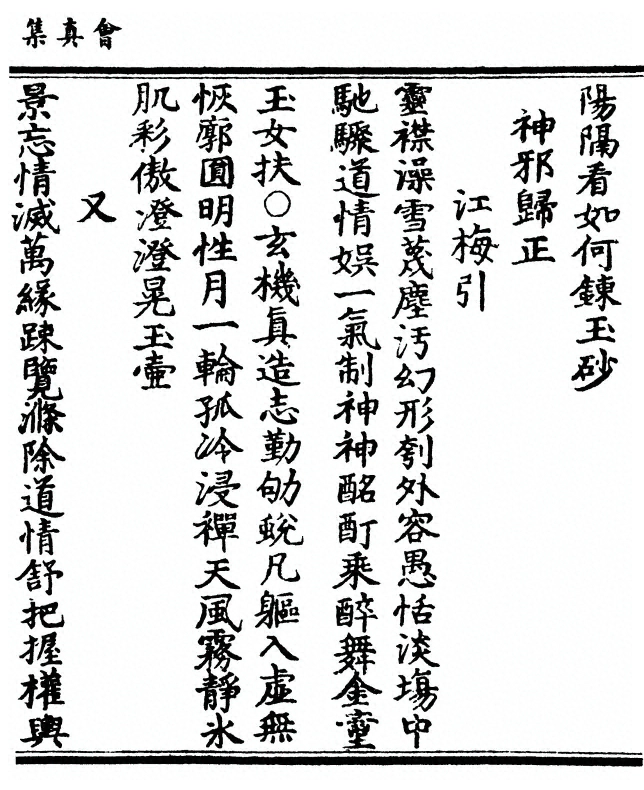 集真會
陽隔看如何鍊玉砂
神邪歸正
江梅引
靈襟澡雪蔑塵汚幻形刳外容愚恬淡塲中
馳驟道情娛一氣制神神酩酊乘醉舞金臺
玉女扶○玄機眞造志勤劬蛻凡軀入虛無
恢廓圓明性月一輪孤冷浸禪天風霧靜氷
肌彩傲澄澄晃玉壺
又
景忘情滅萬緣踈覽滌除道情舒把握權輿